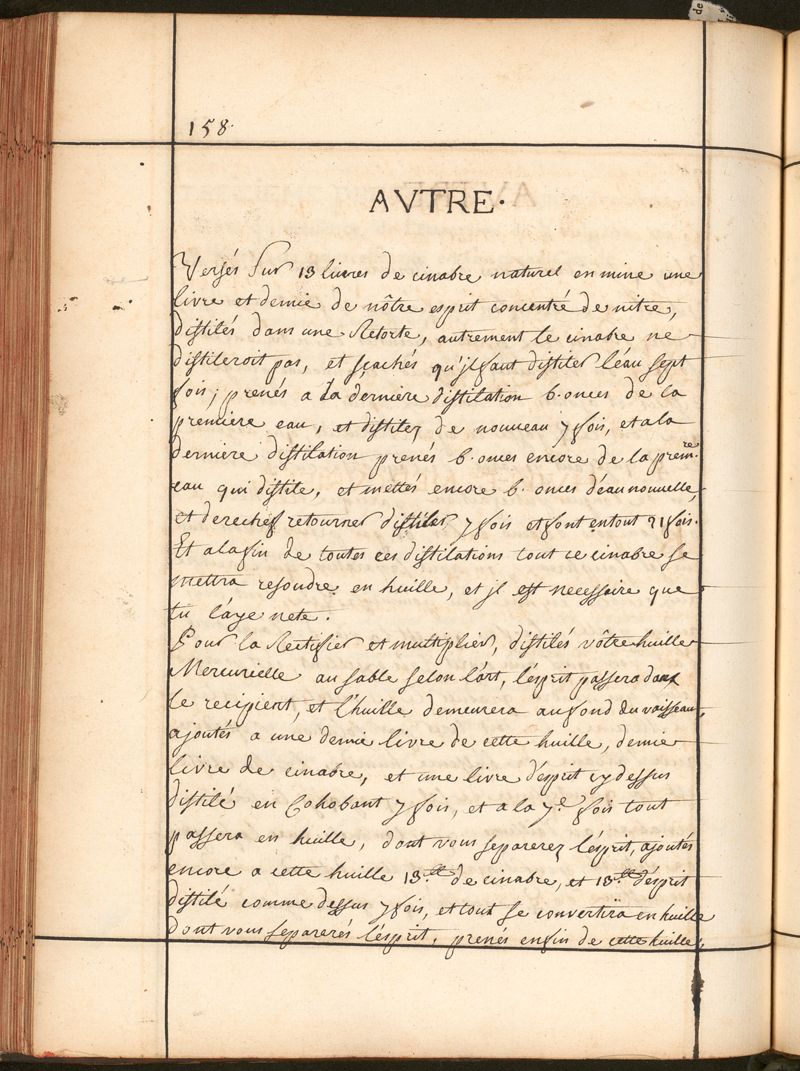 158.
AVTRE.
Versés sur 13 livres de cinabre naturel en mine une
livre et demie de nôtre esprit concentré de nitre,
distilés dans une Retorte, autrement le cinabre ne
distileroit pas, et sçachés qu'jl faut distiler l'éau sept
fois; prenés a la derniére distilation 6. onces de la
premiere eau, et distilez de nouveau 7 fois, et a la
derniere distilation prenés 6. onces encore de la prem.re
eau qui distile, et mettés encore 6. onces d'éau nouvelle,
et derechef retourner distiler 7 fois et font en tout 21 fois.
Et a la fin de toutes ces distilations tout ce cinabre se
mettra resoudre en huille, et jl est necessaire que
tu l'aye nete.
Pour la Rectifier et multiplier, distilés vôtre huille
Mercurielle au sable selon l'art, l'ésprit passera dans
le recipient, et l'huille demeurera au fond du vaisseau,
ajoutés a une demie livre de cette huille, demie
livre de cinabre, et une livre d'ésprit cy dessus
distilé en Cohobant 7 fois, et a la 7.e fois tout
passera en huille, dont vous separerez l'ésprit, ajoutés
encore a cette huille 13.lt de cinabre, et 13.lt d'ésprit
distilé comme dessus 7 fois, et tout se convertira en huille
dont vous separerés l'ésprit, prenés enfin de cette huille,